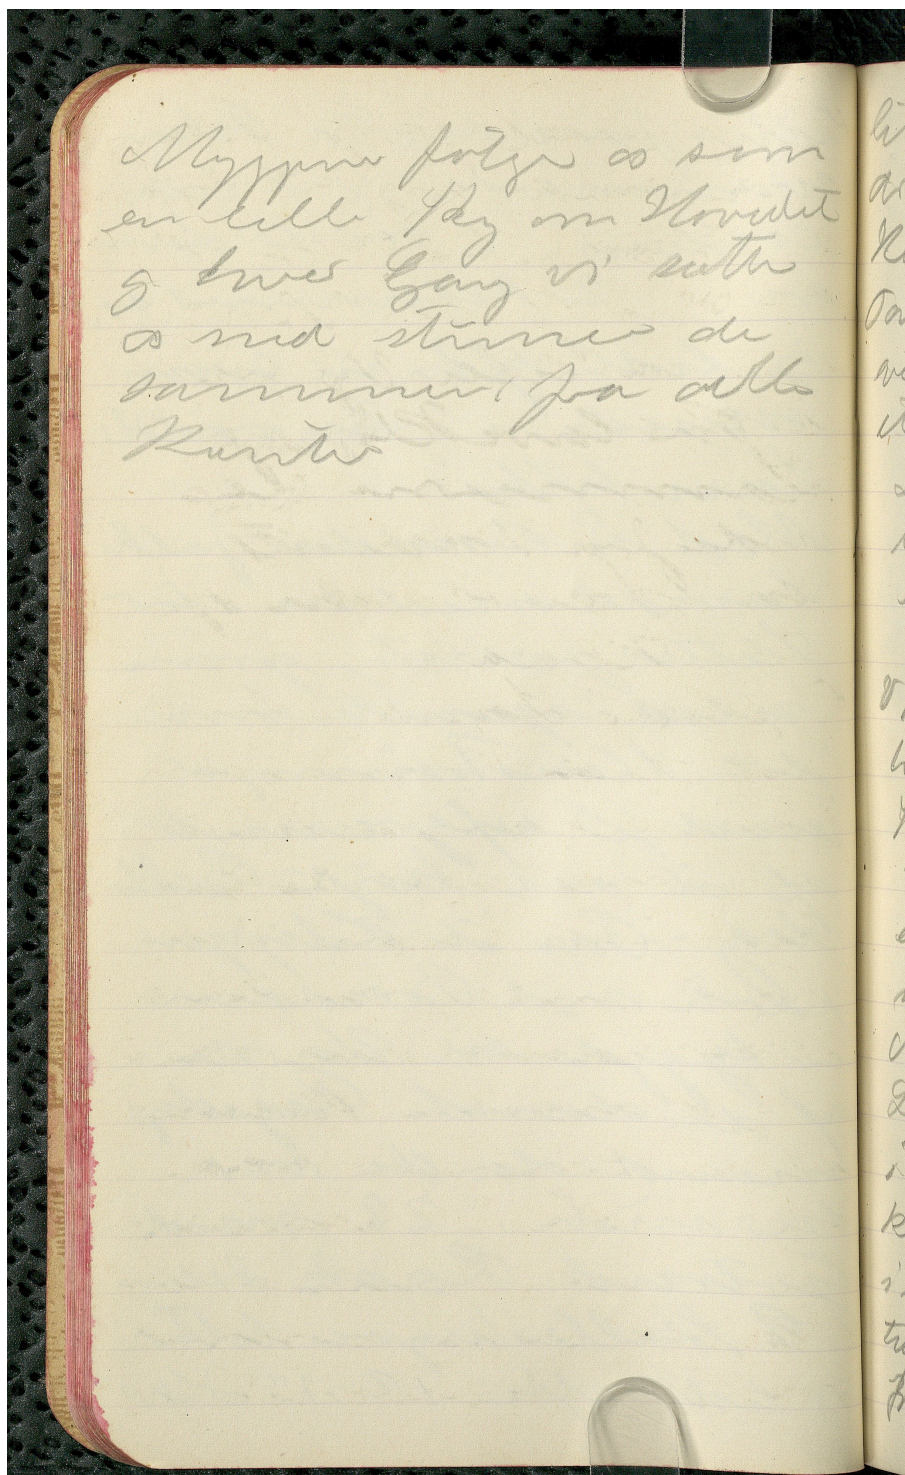 Myggene følger os som
en lille Sky om Hovedet
og hver Gang vi sætte
os ned stimer de
sammen fra alle
Kanter